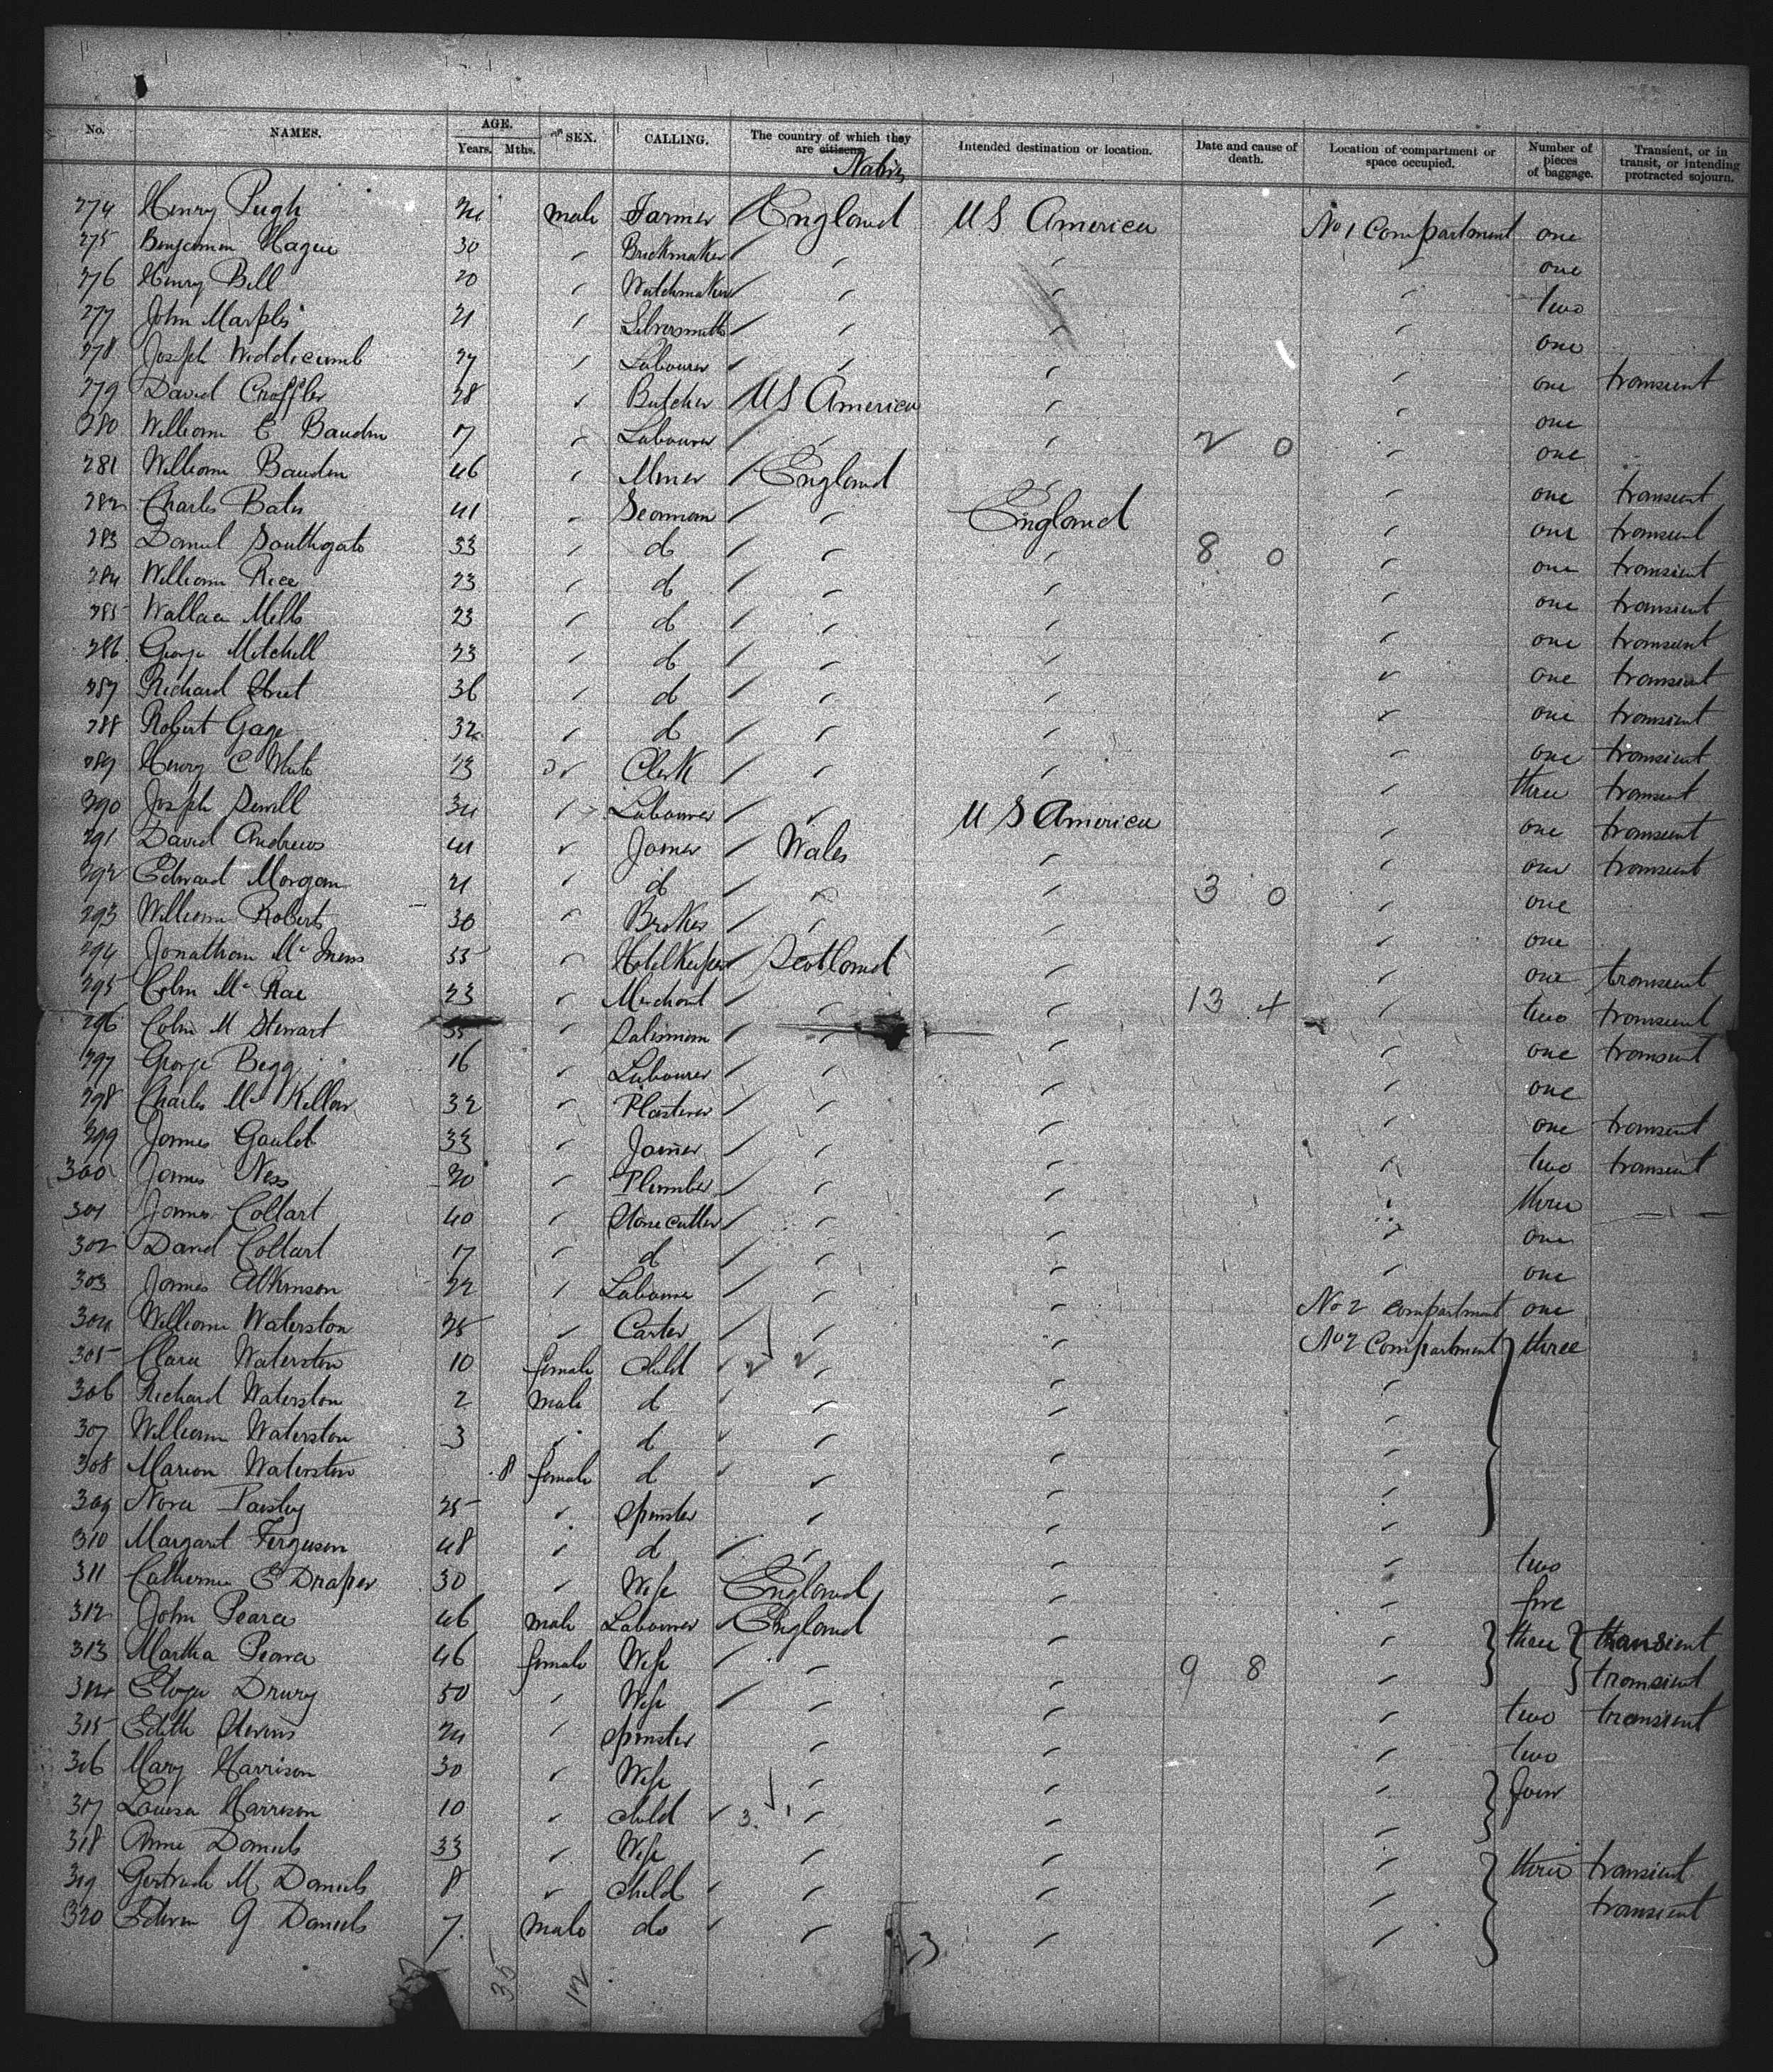 No. NAMES. AGE. Years. Mths. SEX. CALLING. The country of which they are citizens Natives Intended destination or location. Date and cause of death. Location of compartment or space occupied. Number of pieces of baggage. Transient, or in transit, or intending protracted sojourn.
274 Henry Pugh 24 male Farmer England U S America No 1 Compartment one
275 Benjamin Hague 30 Brickmaker one
276 Henry Bell 20 Watchmaker two
277 John Marples 21 Silversmith one
278 Joseph Widdicumb 27 Labourer one transient
279 David 28 Butcher U S America one
280 William E Bauden 7 Labourer 2 0 one
281 William Bauden 46 Miner England one transient
282 Charles Bates 41 Seaman England one transient
283 Daniel Southgate 33 do 8 0 one transient
284 William Rice 23 do one transient
285 Wallace Mells 23 do one transient
286 George Mitchell 23 do one transient
287 Richard 36 do one transient
288 Robert Gage 32 do one transient
289 Henry C White 23 Clerk three transient
290 Joseph Sewell 34 Labourer U S America one transient
291 David Andrews 41 Joiner Wales one transient
292 Edward Morgan 21 do 3 0 one
293 William Roberts 30 Broker one
294 Jonathan Mc Innes 35 Hotel Keeper Scotland one transient
295 Colin Mc Rae 23 Merchant 13 + two transient
296 Colin M Stewart 35 Salesman one transient
297 George Begg 16 Labourer one
298 Charles Mc Kellar 32 Plasterer one transient
299 James Gauld 33 Joiner two transient
300 James Ness 20 Plumber three
301 James Coltart 40 Stone cutter one
302 David Coltart 17 do one
303 James Atkinson 22 Labourer No 2 compartment one
304 William Waterston 25 Carter No 2 Compartment three
305 Clara Waterston 10 female child
306 Richard Waterston 2 male d
307 William Waterston 3 d
308 Marion Waterston 8 female d
309 Nora Paisley 25 Spinster
310 Margaret Ferguson 48 d two
311 Catherine E Draper 30 Wife England five
312 John Pearce 46 male Labourer England three transient
313 Martha Pearce 46 female Wife 9 8 transient
314 Eliza Drury 50 Wife two transient
315 Edith Stevens 24 Spinster two
316 Mary Harrison 30 Wife four
317 Louisa Harrison 10 child 3
318 Anne Daniels 33 Wife three transient
319 Gertrude M Daniels 8 child transient
320 Edwin G Daniels 7 male do
23
35 12